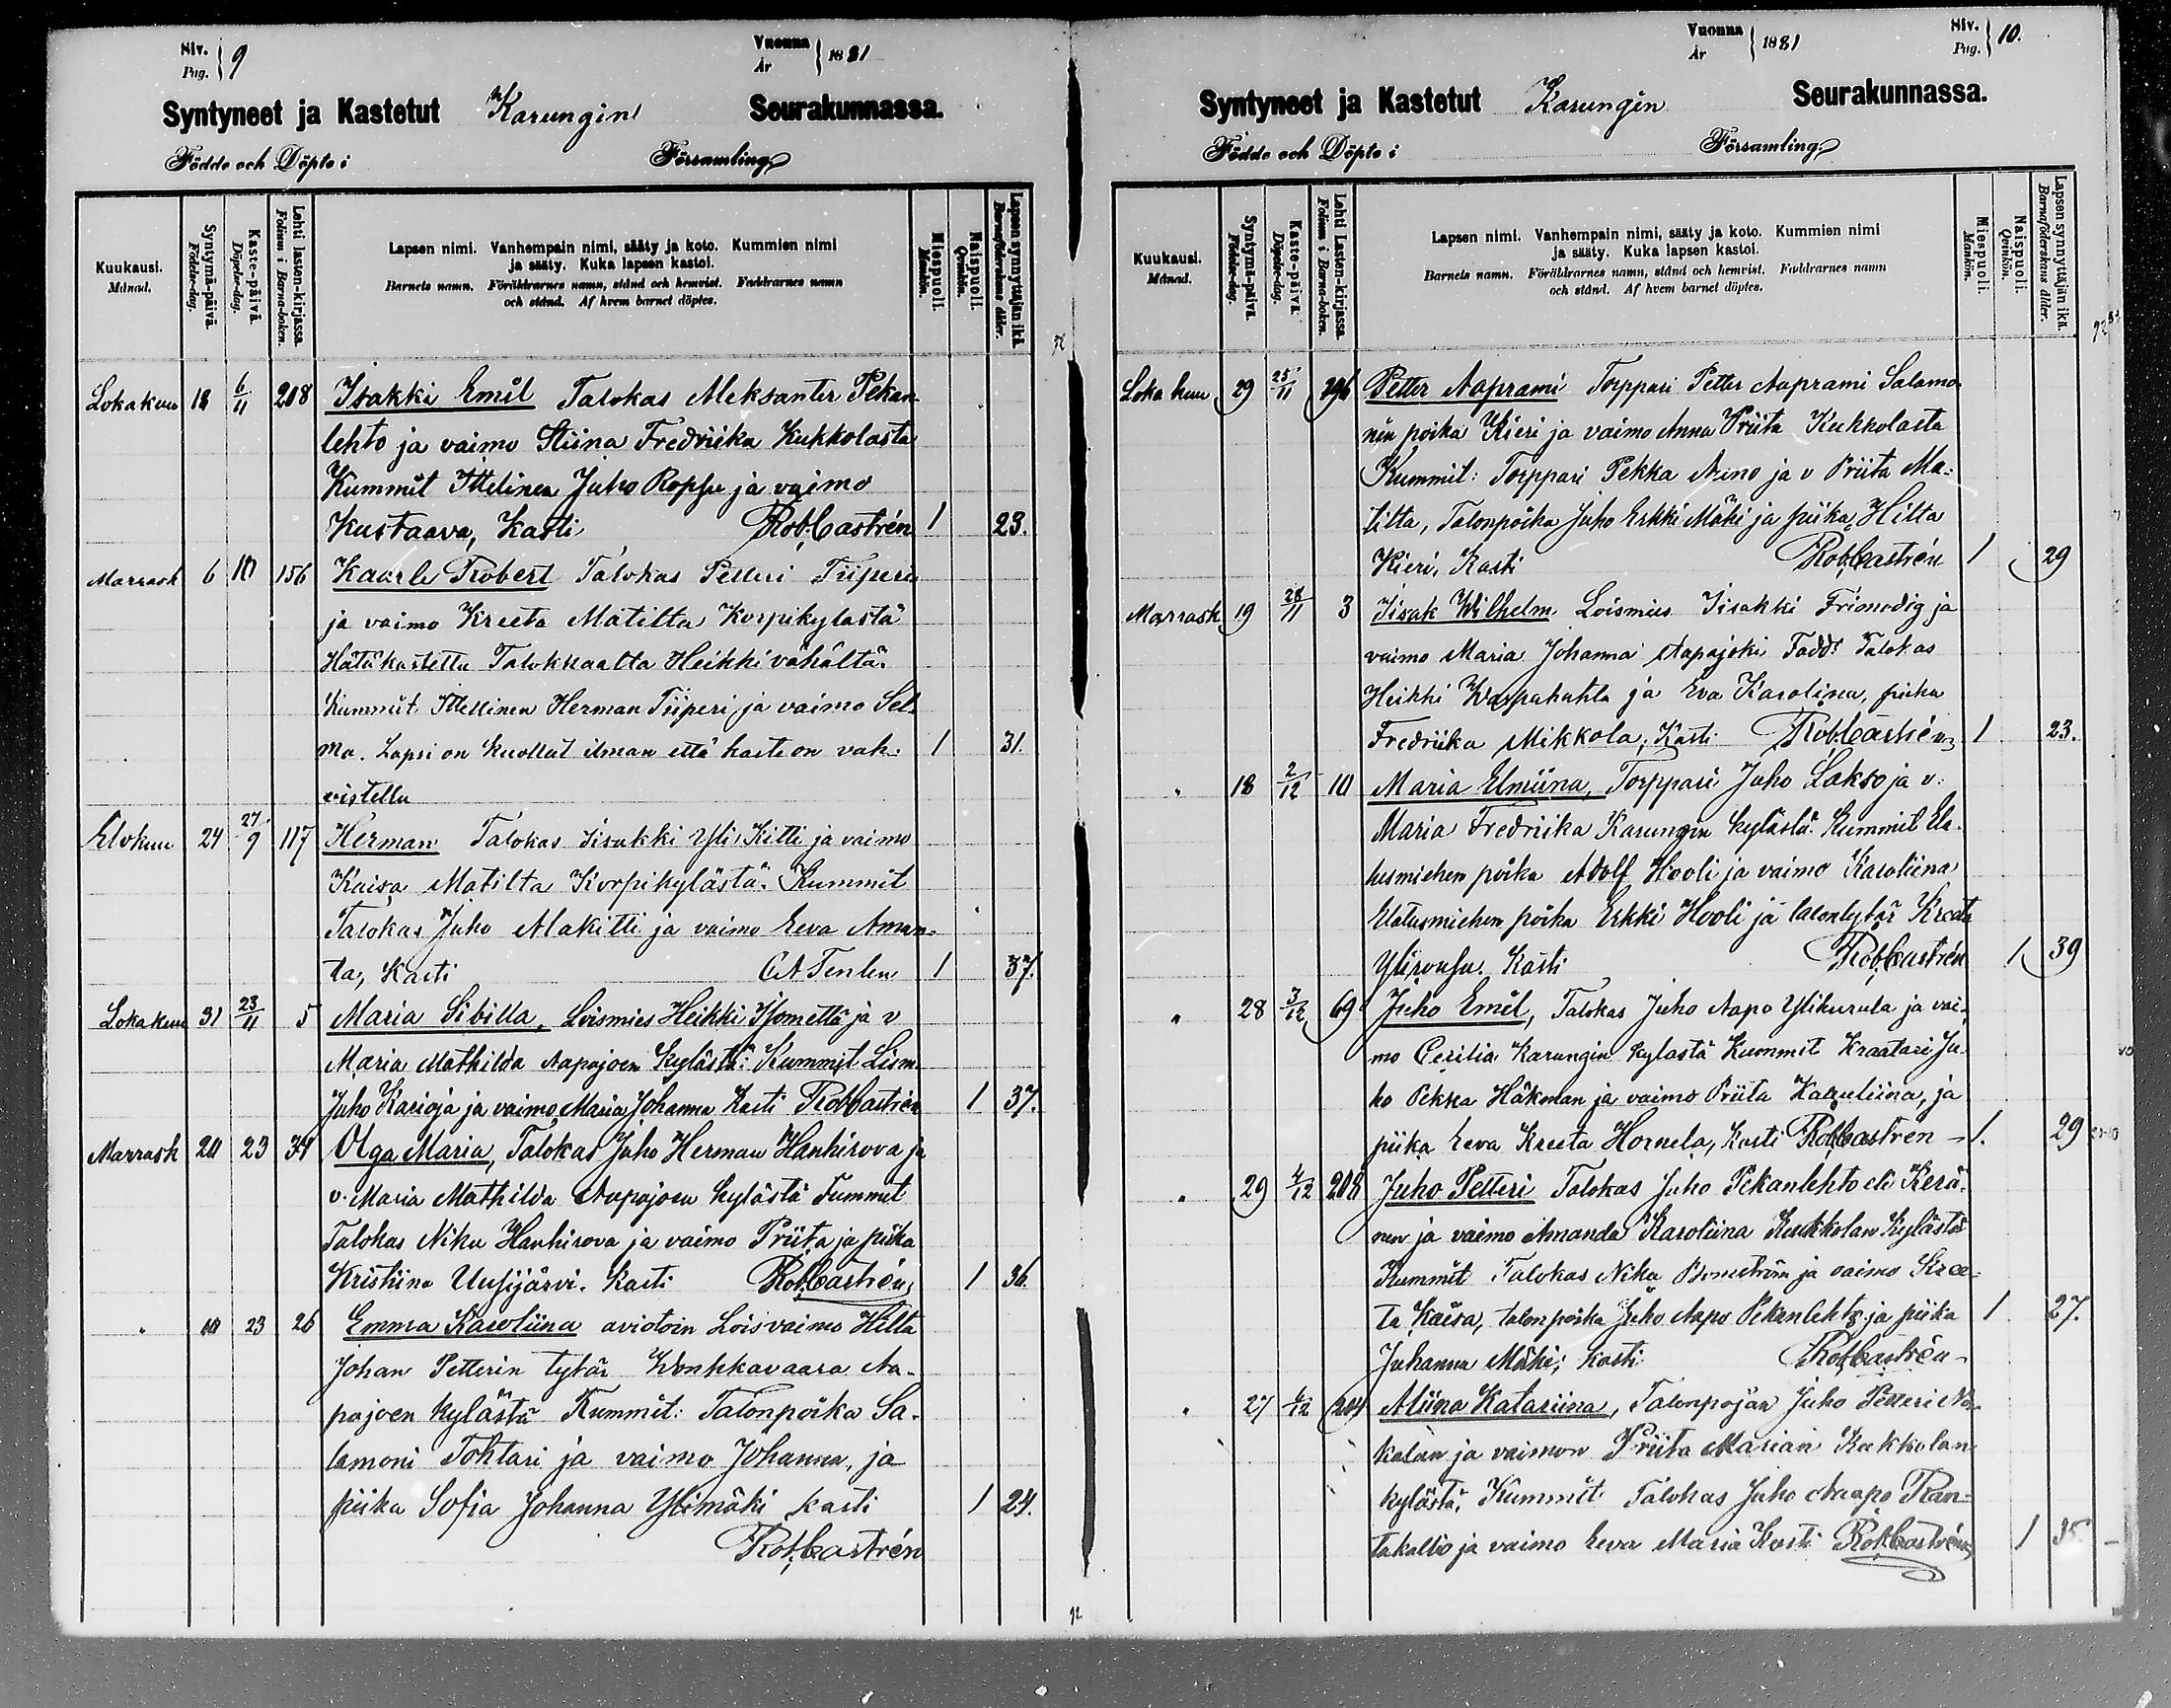 Siv. 9
Pag.
Vuonna 1881
År
Syntyneet ja Kastetut Karungin Seurakunnassa.
Födde och Döpte i Församling
Kuukausi.
Månad.
Syntymä-päivä.
Födelse-dag.
Kaste-päivä.
Döpelse-dag.
Lehti lasten-kirjassa.
Folium i Barna-boken.
Lapsen nimi. Vanhempain nimi, sääty ja koto. Kummien nimi
ja sääty. Kuka lapsen kastoi.
Barnets namn. Föräldrarnes namn, stånd och hemvist. Faddrarnes namn
och stånd. Af hvem barnet döptes.
Miespuoli.
Mankön.
Naispuoli.
Qvinkön.
Lapsen synnyttäjän ikä.
Barnaföderskans ålder.
Lokakuu 18 6/11 208 Isakki Emil Talokas Aleksanter Pekan
lehto ja vaimo Stiina Fredriika Kukkolasta
Kummit Ittelinen Juho Ropsu ja vaimo
Kustaava, Kasti Rob Castrén 1 23.
Marrask 6 10 156 Kaarle Robert Talokas Petteri Tiiperi
ja vaimo Kreeta Matilta Korpikylästä
Hätäkastettu Talokkaalta Heikki vähältä.
Kummit Ittellinen Herman Tiiperi ja vaimo Sel
ma. Lapsi on kuollut ilman että kaste on vah- 1 31.
vistettu
Elokuu 24 27/9 117 Herman Talokas Iisakki Yli Kitti ja vaimo
Kaisa Matilta Korpikylästä. Kummit
Talokas Juho Alakitti ja vaimo Eeva Aman-
ta, Kasti 1 37.
Lokakuu 31 23/11 5 Maria Sibilla, Loismies Heikki ja v
Maria Mathilda Aapajoen kylästä: Kummit Lism.
Juho Karioja ja vaimo Maria Johanna Kasti Rob Castrén 1 37.
Marrask 20 23 34 Olga Maria, Talokas Juho Herman Hanhirova ja
v. Maria Mathilda Aapajoen kylästä Kummit
Talokas Niku Hanhirova ja vaimo Priita ja piika
Kristiina Uusijärvi. Kasti Rob Castrén 1 36.
" 10 23 26 Emma Karoliina aviotoin Loisvaimo Hilta
Johan Petterin tytär Wonkkavaara Aa-
pajoen kylästä Kummit: Talonpoika Sa-
lamoni Tohtari ja vaimo Johanna, ja
piika Sofia Johanna Ylimäki kasti 1 24.
Rob Castrén
Vuonna 1881
År
Siv. 10.
Pag.
Syntyneet ja Kastetut Karungin Seurakunnassa.
Födde och Döpte i Församling
Kuukausi.
Månad.
Syntymä-päivä.
Födelse-dag.
Kaste-päivä.
Döpelse-dag.
Lehti lasten-kirjassa.
Folium i Barna-boken.
Lapsen nimi. Vanhempain nimi, sääty ja koto. Kummien nimi
ja sääty. Kuka lapsen kastoi.
Barnets namn. Föräldrarnes namn, stånd och hemvist. Faddrarnes namn
och stånd. Af hvem barnet döptes.
Miespuoli.
Mankön.
Naispuoli.
Qvinkön.
Lapsen synnyttäjän ikä.
Barnaföderskans ålder.
Loka kuu 29 25/11 Petter Aaprami Torppari Petter Aaprami Salamo
nin poika Kieri ja vaimo Anna Priita Kukkolasta
Kummit: Torppari Pekka Aino ja v Priita Ma-
titta, Talonpoika Juho Erkki Mäki ja piika Hilta
Kieri, Kasti Rob Castrén 1 29
Marrask 19 28/11 3 Iisak Wilhelm Loismies Iisakki Frimodig ja
vaimo Maria Johanna Aapajoki Fadd: Talokas
Heikki ja Eva Karolina, piika
Fredriika Mikkola, Kasti Rob Castrén 1 23.
" 18 2/12 10 Maria Elmiina, Torppari Juho Lakso ja v.
Maria Fredriika Karungin kylästä. Kummit Ela-
tusmiehen poika Adolf Hooli ja vaimo Karoliina
Elatusmiehen poika Erkki Hooli ja talontytär Kreeta
Ylipousu. Kasti Rob Castrén 1 39
" 28 3/12 69 Juho Emil, Talokas Juho Aapo Ylikurula ja vai-
mo Cecilia Karungin kylästä Kummit Kraatari Ju-
ho Pekka Häkman ja vaimo Priita Kauuliina, ja
piika Eeva Kreeta Hornela, Kasti Rob Castren 1. 29
" 29 4/12 208 Juho Petteri Talokas Juho Pekanlehto eli Kerä-
nen ja vaimo Amanda Karoliina Kukkolan Kylästä
Kummit Talokas Niku ja vaimo Kree-
ta Kaisa, talonpoika Juho Aapo Pekanlehto ja piika 1 27.
Johanna Mäki; kasti Rob Castrén
" 27 4/12 204 Miina Katariina, Talonpojan Juho Petteri No-
kalan ja vaimon Priita Marian Kukkolan
kylästä, Kummit Talokas Juho Aaapo Ran-
takallio ja vaimo Eeva Maria Kasti Rob Castrén 1 35